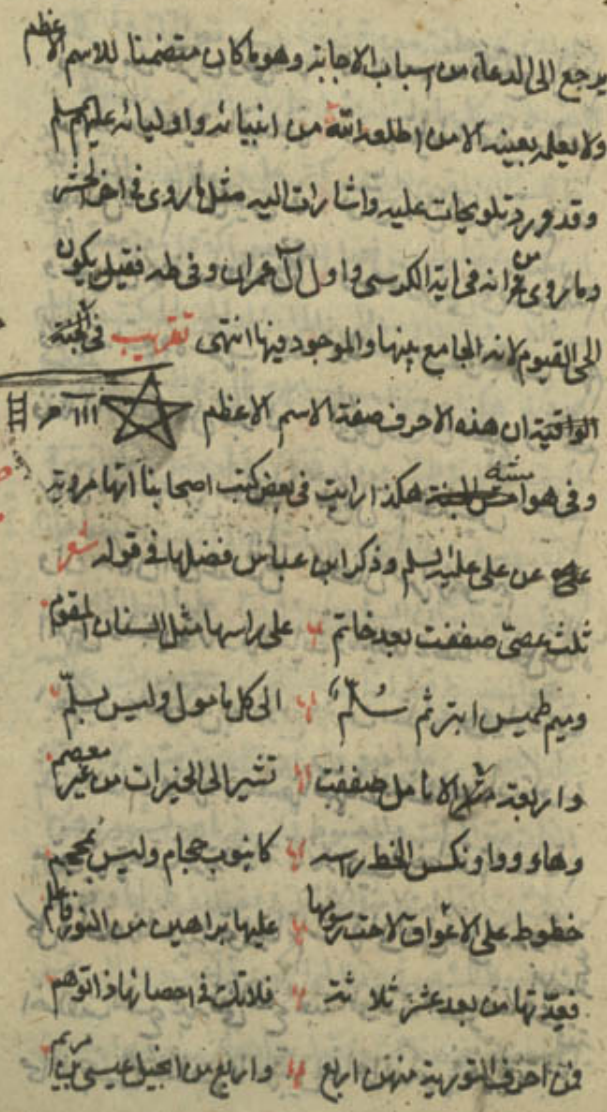 يرجع الى الدعاء من اسباب الاجابة وهو ما كان متضمنا للاسم الاعظم
ولا يعلمه بعينه الا من اطلعه الله من انبيائه واوليائه عليهم السلم
وقد ورد تلويحات عليه واشارات اليه مثل ما روى فى اخر الحشر
وما روى من انه فى اية الكرسى واول آل عمران وفى طه فقيل يكون
الحى القيوم لانه الجامع بينها والموجود فيها انتهى تقريب فى الجنة
الواقية ان هذه الاحرف صفة الاسم الاعظم ااا م
وفى هوامش هكذا رايت فى بعض كتب اصحابنا انها مروية
عن على عليه السلم وذكر ابن عباس فضلها فى قوله شعر
ثلث عصىّ صففت بعد خاتم على راسها مثل السنان المقوم
وميم طميس ابتر ثم سُلّم الى كل مامول وليس بسلّم
واربعة مثل الانامل صففت تشير الى الخيرات من غير معصم
وهاء وواو نكس الخط راسه كانبوب حجام وليس بمحجم
خطوط على الاعواق لاحت رسومها عليها براهين من النور فاعلم
فعدّتها من بعد عشر ثلاثة فلا تك فى احصائها ذا توهم
فمن احرف التورية منهن اربع واربع من انجيل عيسى بن مريم